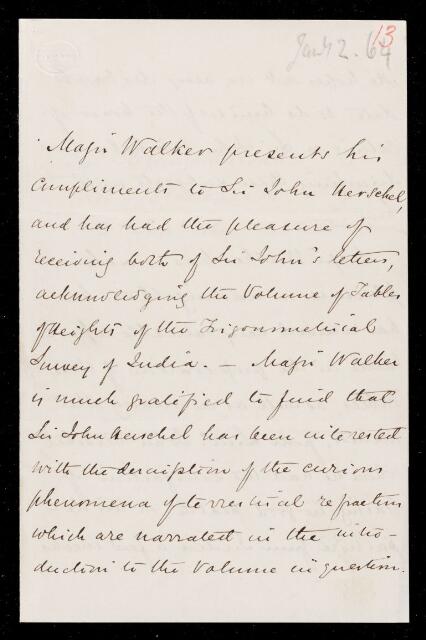 13
Jan 2. 64
Major Walker presents his
compliments to Sir John Herschel,
and has had the pleasure of
receiving both of Sir John's letters,
acknowledging the Volume of Tables
of Heights of the Trigonometrical
Survey of India. — Major Walker
is much gratified to find that
Sir John Herschel has been interested
with the description of the curious
phenomena of terrestrial refraction
which are narrated in the intro-
duction to the Volume in question.